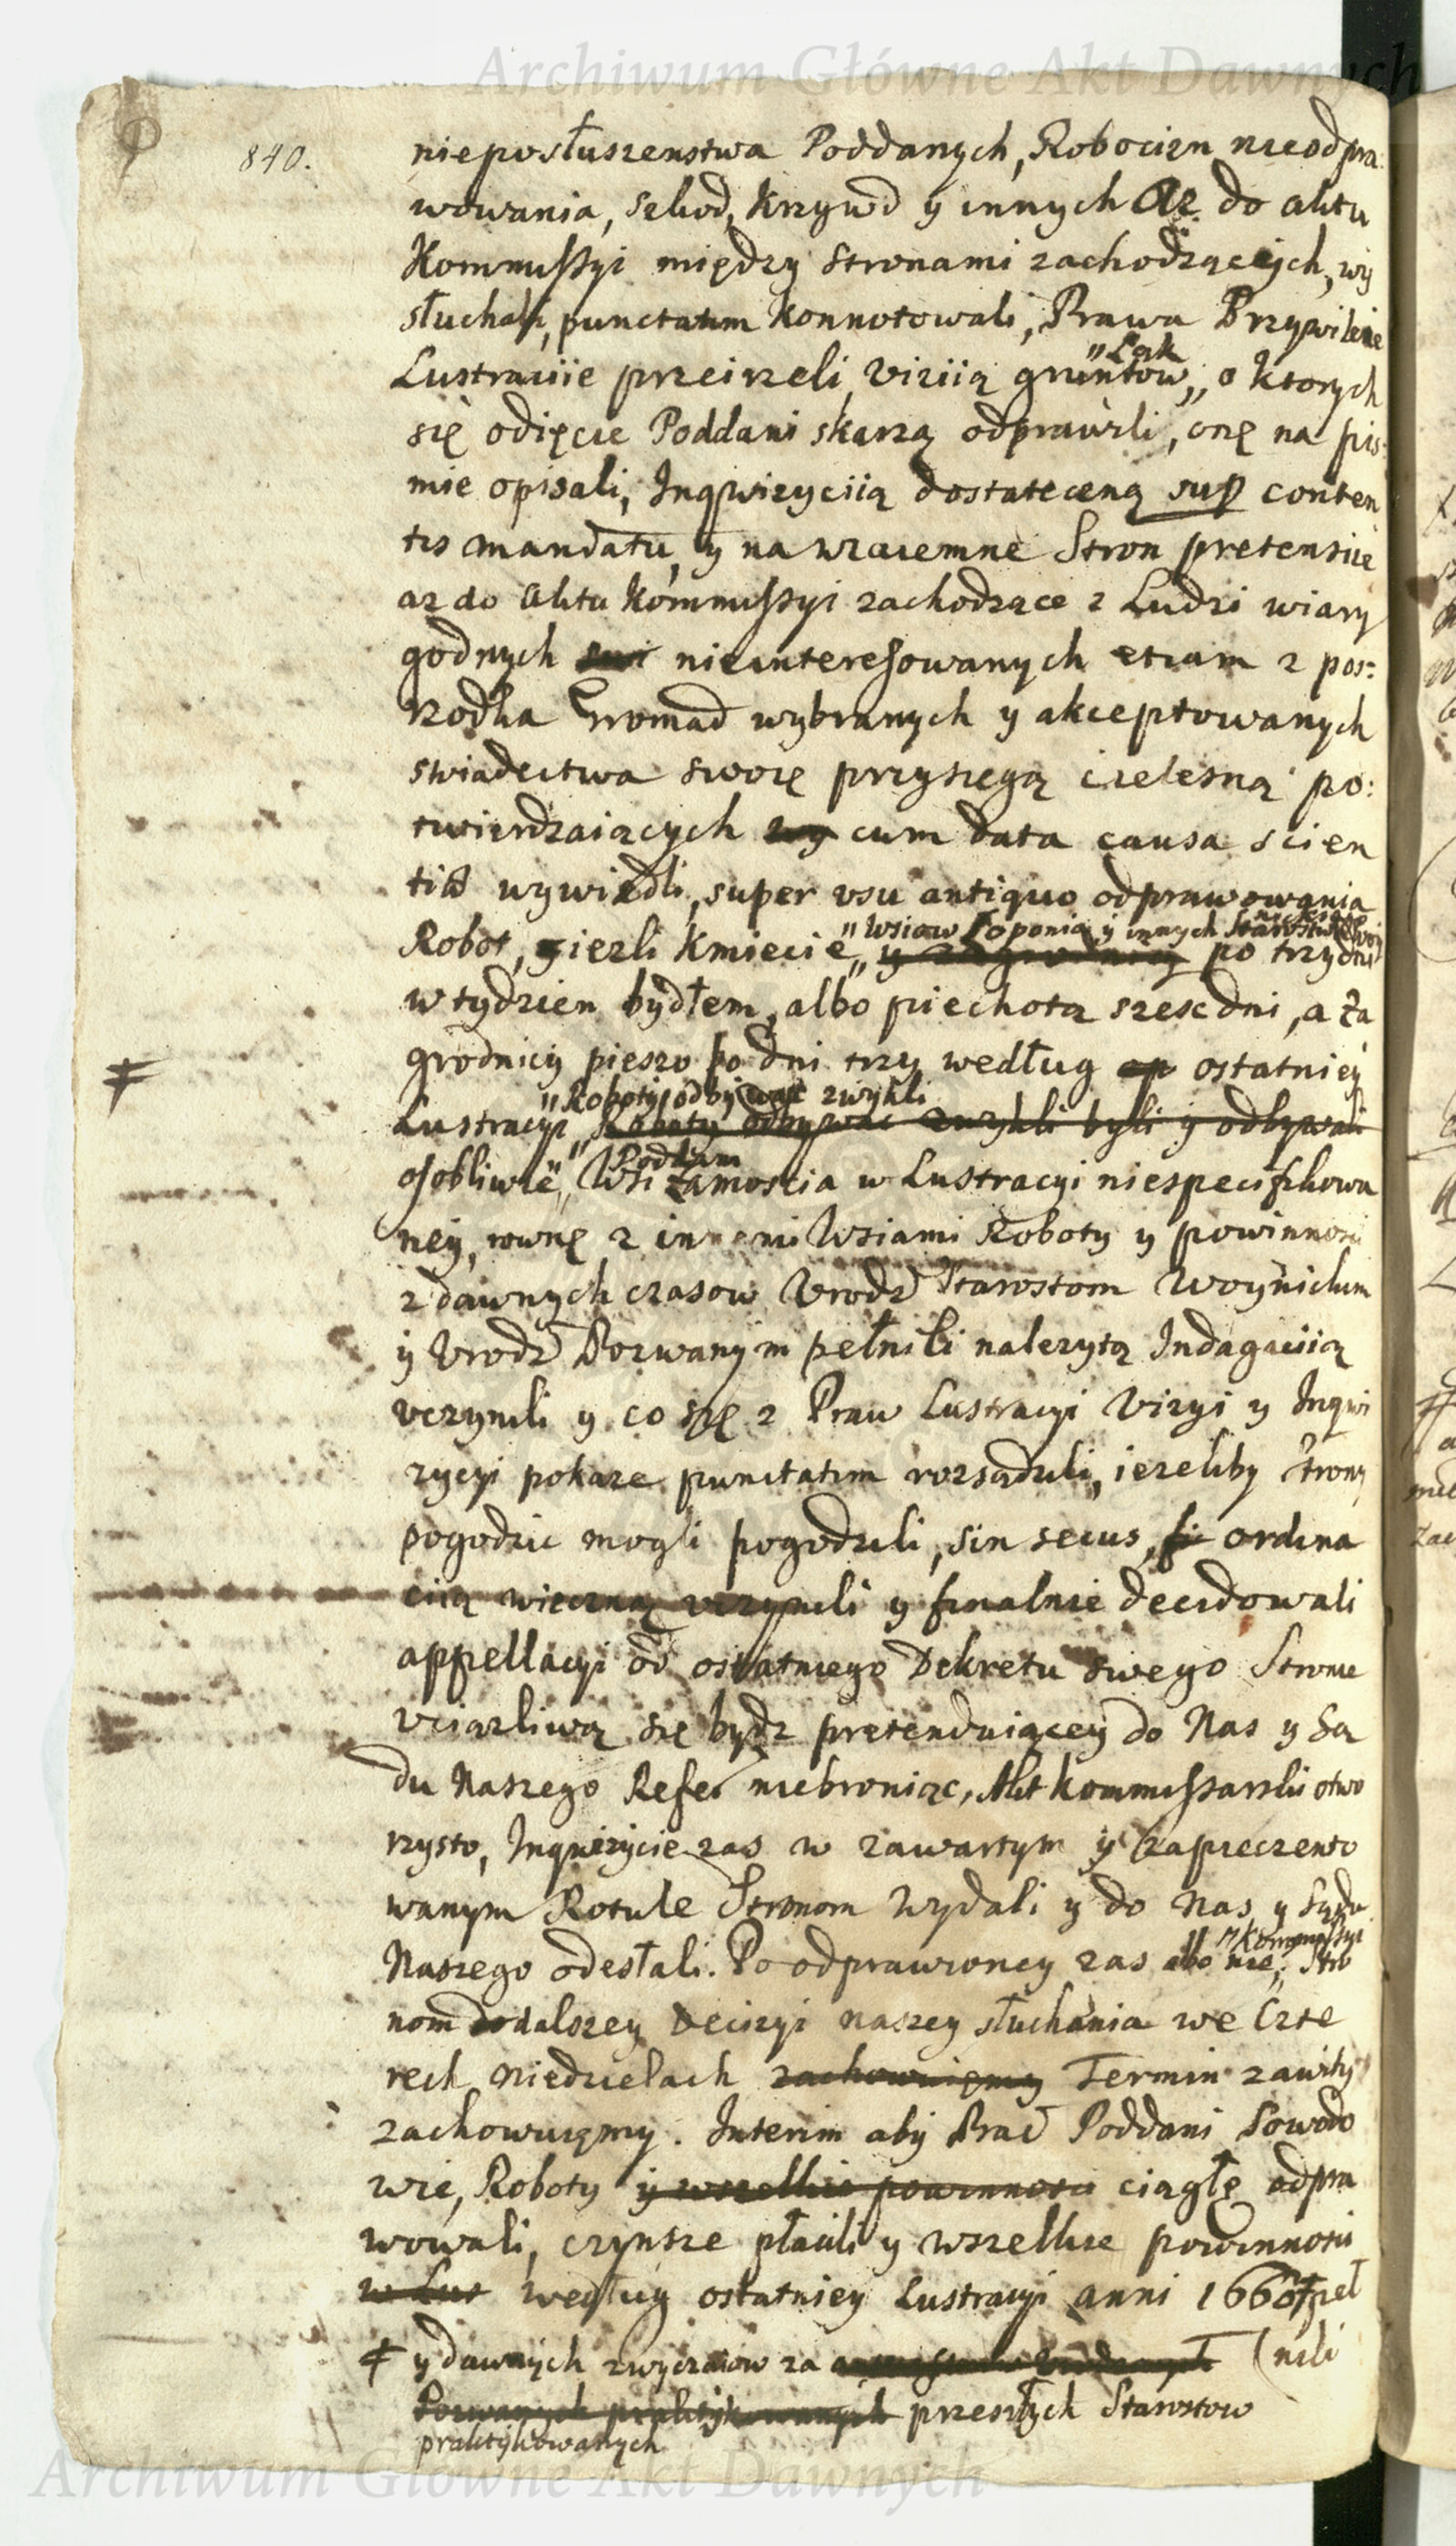 Archiwum Główne Akt Dawnych
840.
nieposłuszenstwa Poddanych, Robocizn nieodpra:
wowania, szkod, krzywd y innych az do aktu
Kommissyi między stronami zachodzących, wy
słuchali, punctatim konnotowali, Prawa Przywileie
Lustraciie przeirzeli, Viziią gruntow, o ktorych
"Łąk
się odięcie Poddani skarzą odprawili, onę na pis:
mie opisali, Inqwizyciią dostateczną sup conten
tis mandatu, y na wzaiemne Stron pretensiie
az do aktu Kommissyi zachodzące z Ludzi wiary
godnych nieinteresowanych etiam z pos:
rzodka Gromad wybranych y akceptowanych
swiadectwa swoię przysięgą cielesną po:
twierdzaiących cum data causa scien
tia wywiedli, super vsu antiquo odprawowania
Robot, iezli kmiecie po trzy dni
"Wsiow Łoponia y innych
w tydzien bydłem, albo piechotą szesc dni, a Za
grodnicy pieszo po dni trzy według ostatniey
Lustracyi
"Roboty odbywac zwykli
Roboty odbywac zwykli byli y odbywali
osobliwie Wsi Zamoscia w Lustracyi niespecifikowa
"Poddani
ney, rownę z innemi Wsiami Roboty y powinnosci
z dawnych czasow Vrodz Starostom Woynickim
y Vrodz Pozwanym pełnili nalezytą Indagaciią
vczynili y co się z Praw Lustracyi Vizyi y Inqwi
zycyi pokaze punctatim rozsądzili, iezeliby Strony
pogodzic mogli pogodzili, sin secus, ordina
ciią wieczną vczynili y finalnie decidowali
appellacyi od ostatniego Dekretu swego Stronie
vciązliwą się bydz pretenduiącey do Nas y Są
du Naszego Refer niebroniąc, Akt kommissarski otwo
rzysto, Inqwizycie zas w zawartym y zapieczento
wanym Rotule Stronom wydali y do Nas y Sądu
Naszego odesłali. Po odprawioney zas albo nie, Stro
"Kommissyi
nom do dalszey Decizyi naszey słuchania we Czte
rech Niedzielach zachowuiemy Termin zawity
zachowuięmy. Interim aby Prac Poddani Powodo
wie, Roboty y wszelkie powinnosci ciągłę odpra
wowali, czynsze płacili y wszelkie powinnosci
w Lus według ostatniey Lustracyi anni 1660 peł
(nili
y dawnych zwyczaiow za
Pozwanych praktykowanych przeszłych Starostow
praktykowanych
Archiwum Główne Akt Dawnych